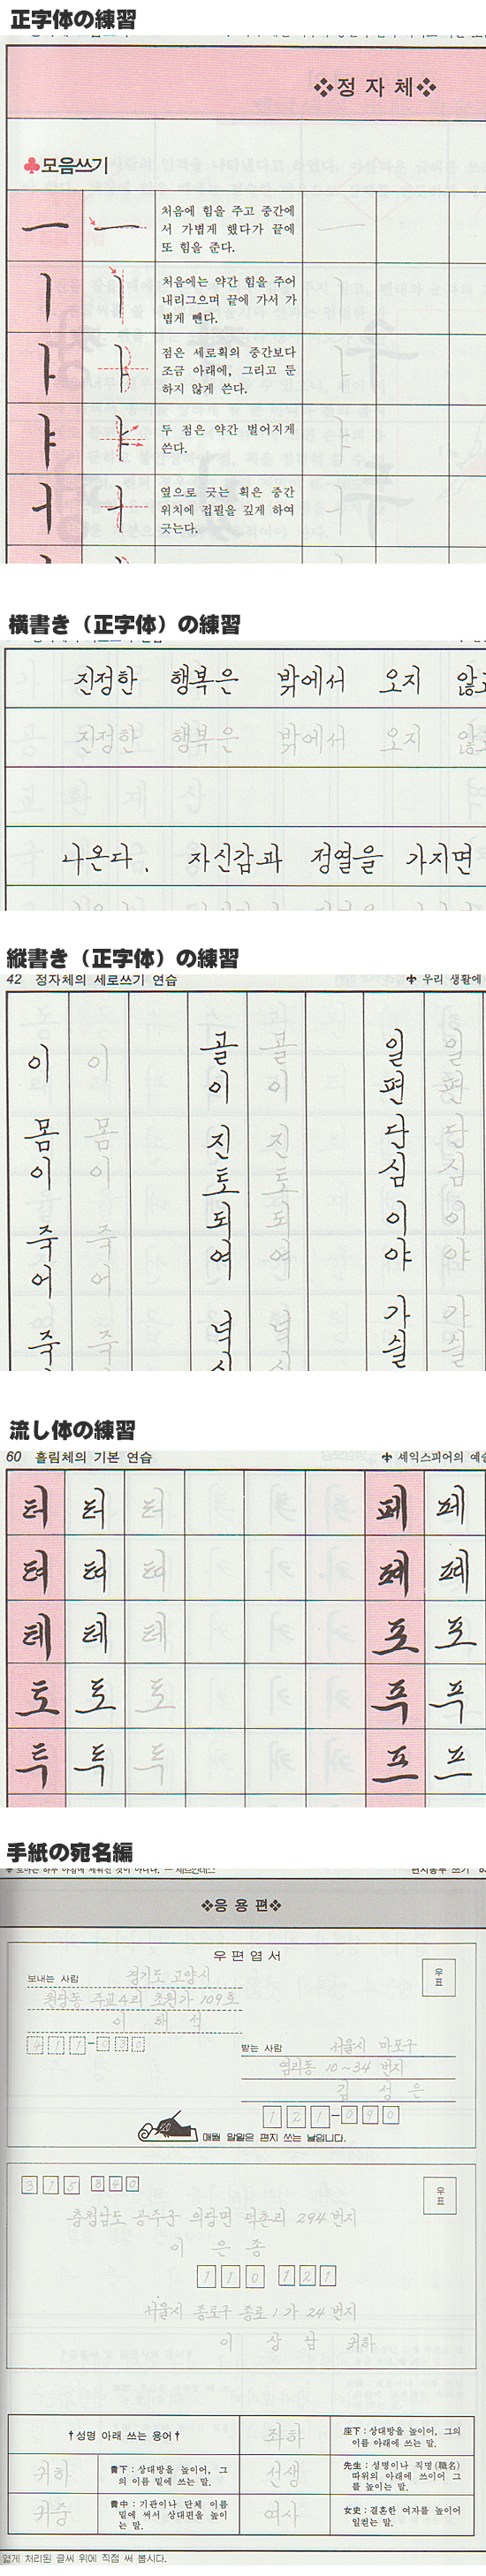 正字体の練習
❖정 자 체❖
♣모음쓰기
처음에 힘을 주고 중간에
서 가볍게 했다가 끝에
또 힘을 준다.
처음에는 약간 힘을 주어
내리그으며 끝에 가서 가
볍게 뺀다.
점은 세로획의 중간보다
조금 아래에, 그리고 둔
하지 않게 쓴다.
두 점은 약간 벌어지게
쓴다.
옆으로 긋는 획은 중간
위치에 접필을 깊게 하여
긋는다.
横書き（正字体）の練習
진정한 행복은 밖에서 오지 않고
진정한 행복은 밖에서 오지 않고
나온다. 자신감과 정열을 가지면
縦書き（正字体）の練習
42 정자체의 세로쓰기 연습
우리 생활에
일편단심이야 가실
일편단심이야 가실
골이 진토되여 넋
골이 진토되여 넋
이 몸이 죽어 죽
이 몸이 죽어 죽
流し体の練習
60 흘림체의 기본 연습
셰익스피어의 예술
터 터 터 페 페
텨 텨 텨 폐 폐
테 테 테 포 포
토 토 토 푸 푸
투 투 투 프 프
手紙の宛名編
❖응 용 편❖
우 편 엽 서
보내는 사람 경기도 고양시
원당동 주교4리 초원가 109호
이 해 석
411-030
우표
받는 사람 서울시 마포구
염리동 10~34 번지
김 성 은
121-090
매월 말일은 편지 쓰는 날입니다.
315 840
우표
충청남도 공주군 의당면 덕촌리 294 번지
이 은 종
110 121
서울시 종로구 종로 1가 24 번지
이 상 남 귀하
†성명 아래 쓰는 용어†
좌하
座下：상대방을 높이어, 그의
이름 아래에 쓰는 말.
귀하
貴下：상대방을 높이어, 그
의 이름 밑에 쓰는 말.
선생
先生：성명이나 직명(職名)
따위의 아래에 쓰이어 그
를 높이는 말.
귀중
貴中：기관이나 단체 이름
밑에 써서 상대편을 높이
는 말.
여사
女史：결혼한 여자를 높이어
일컫는 말.
엷게 처리된 글씨 위에 직접 써 봅시다.